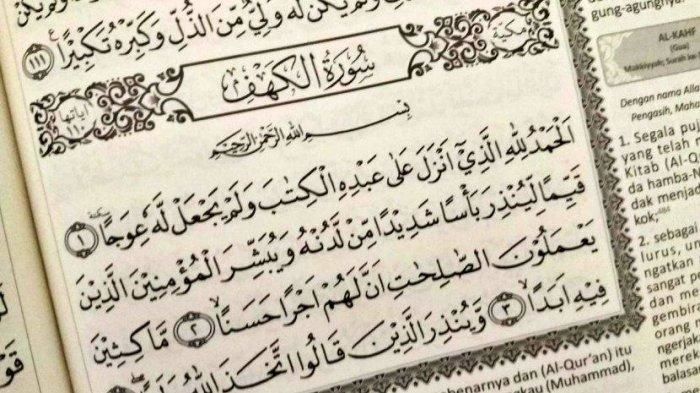 وَلَمْ يَكُنْ لَهُ وَلِيٌّ مِّنَ الذُّلِّ وَكَبِّرْهُ تَكْبِيرًا ۝١١١
مكية
سُوْرَةُ الْكَهْفِ
اٰيَاتُهَا ١١٠
بِسْمِ اللّٰهِ الرَّحْمٰنِ الرَّحِيْمِ
اَلْحَمْدُ لِلّٰهِ الَّذِيْٓ اَنْزَلَ عَلٰى عَبْدِهِ الْكِتٰبَ وَلَمْ يَجْعَلْ لَّهٗ عِوَجًا ۝١
قَيِّمًا لِّيُنْذِرَ بَأْسًا شَدِيْدًا مِّنْ لَّدُنْهُ وَيُبَشِّرَ الْمُؤْمِنِيْنَ الَّذِيْنَ
يَعْمَلُوْنَ الصّٰلِحٰتِ اَنَّ لَهُمْ اَجْرًا حَسَنًاۙ ۝٢ مَّاكِثِيْنَ
فِيْهِ اَبَدًاۙ ۝٣ وَّيُنْذِرَ الَّذِيْنَ قَالُوا اتَّخَذَ اللّٰهُ
gung-agungnya.
AL-KAHF
(Gua)
Makkiyyah; Surah ke-
Dengan nama Alla
Pengasih, Maha
1. Segala puj
yang telah m
Kitab (Al-Q
da hamba-N
dak menja
kok;
2. sebagai
lurus, u
ngatkan
sangat p
dan me
gembir
orang
ngerjak
mere
balasan
benarnya dan (Al-Qur'an) itu
gkau (Muhammad),